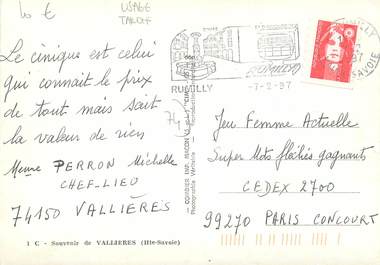 10 €
USAGE
TARIF
Le cinique est celui
qui connait le prix
de tout mais sait
la valeur de rien
Meune PERRON Michelle
CHEF-LIEU
74150 VALLIÈRES
1 C - Souvenir de VALLIERES (Hte-Savoie)
74
RUMILLY
-7-2-97
RUMILLY
SAVOIE
Jeu Femme Actuelle
Super Mots fléchés gagnants
CEDEX 2700
99270 PARIS CONCOURT